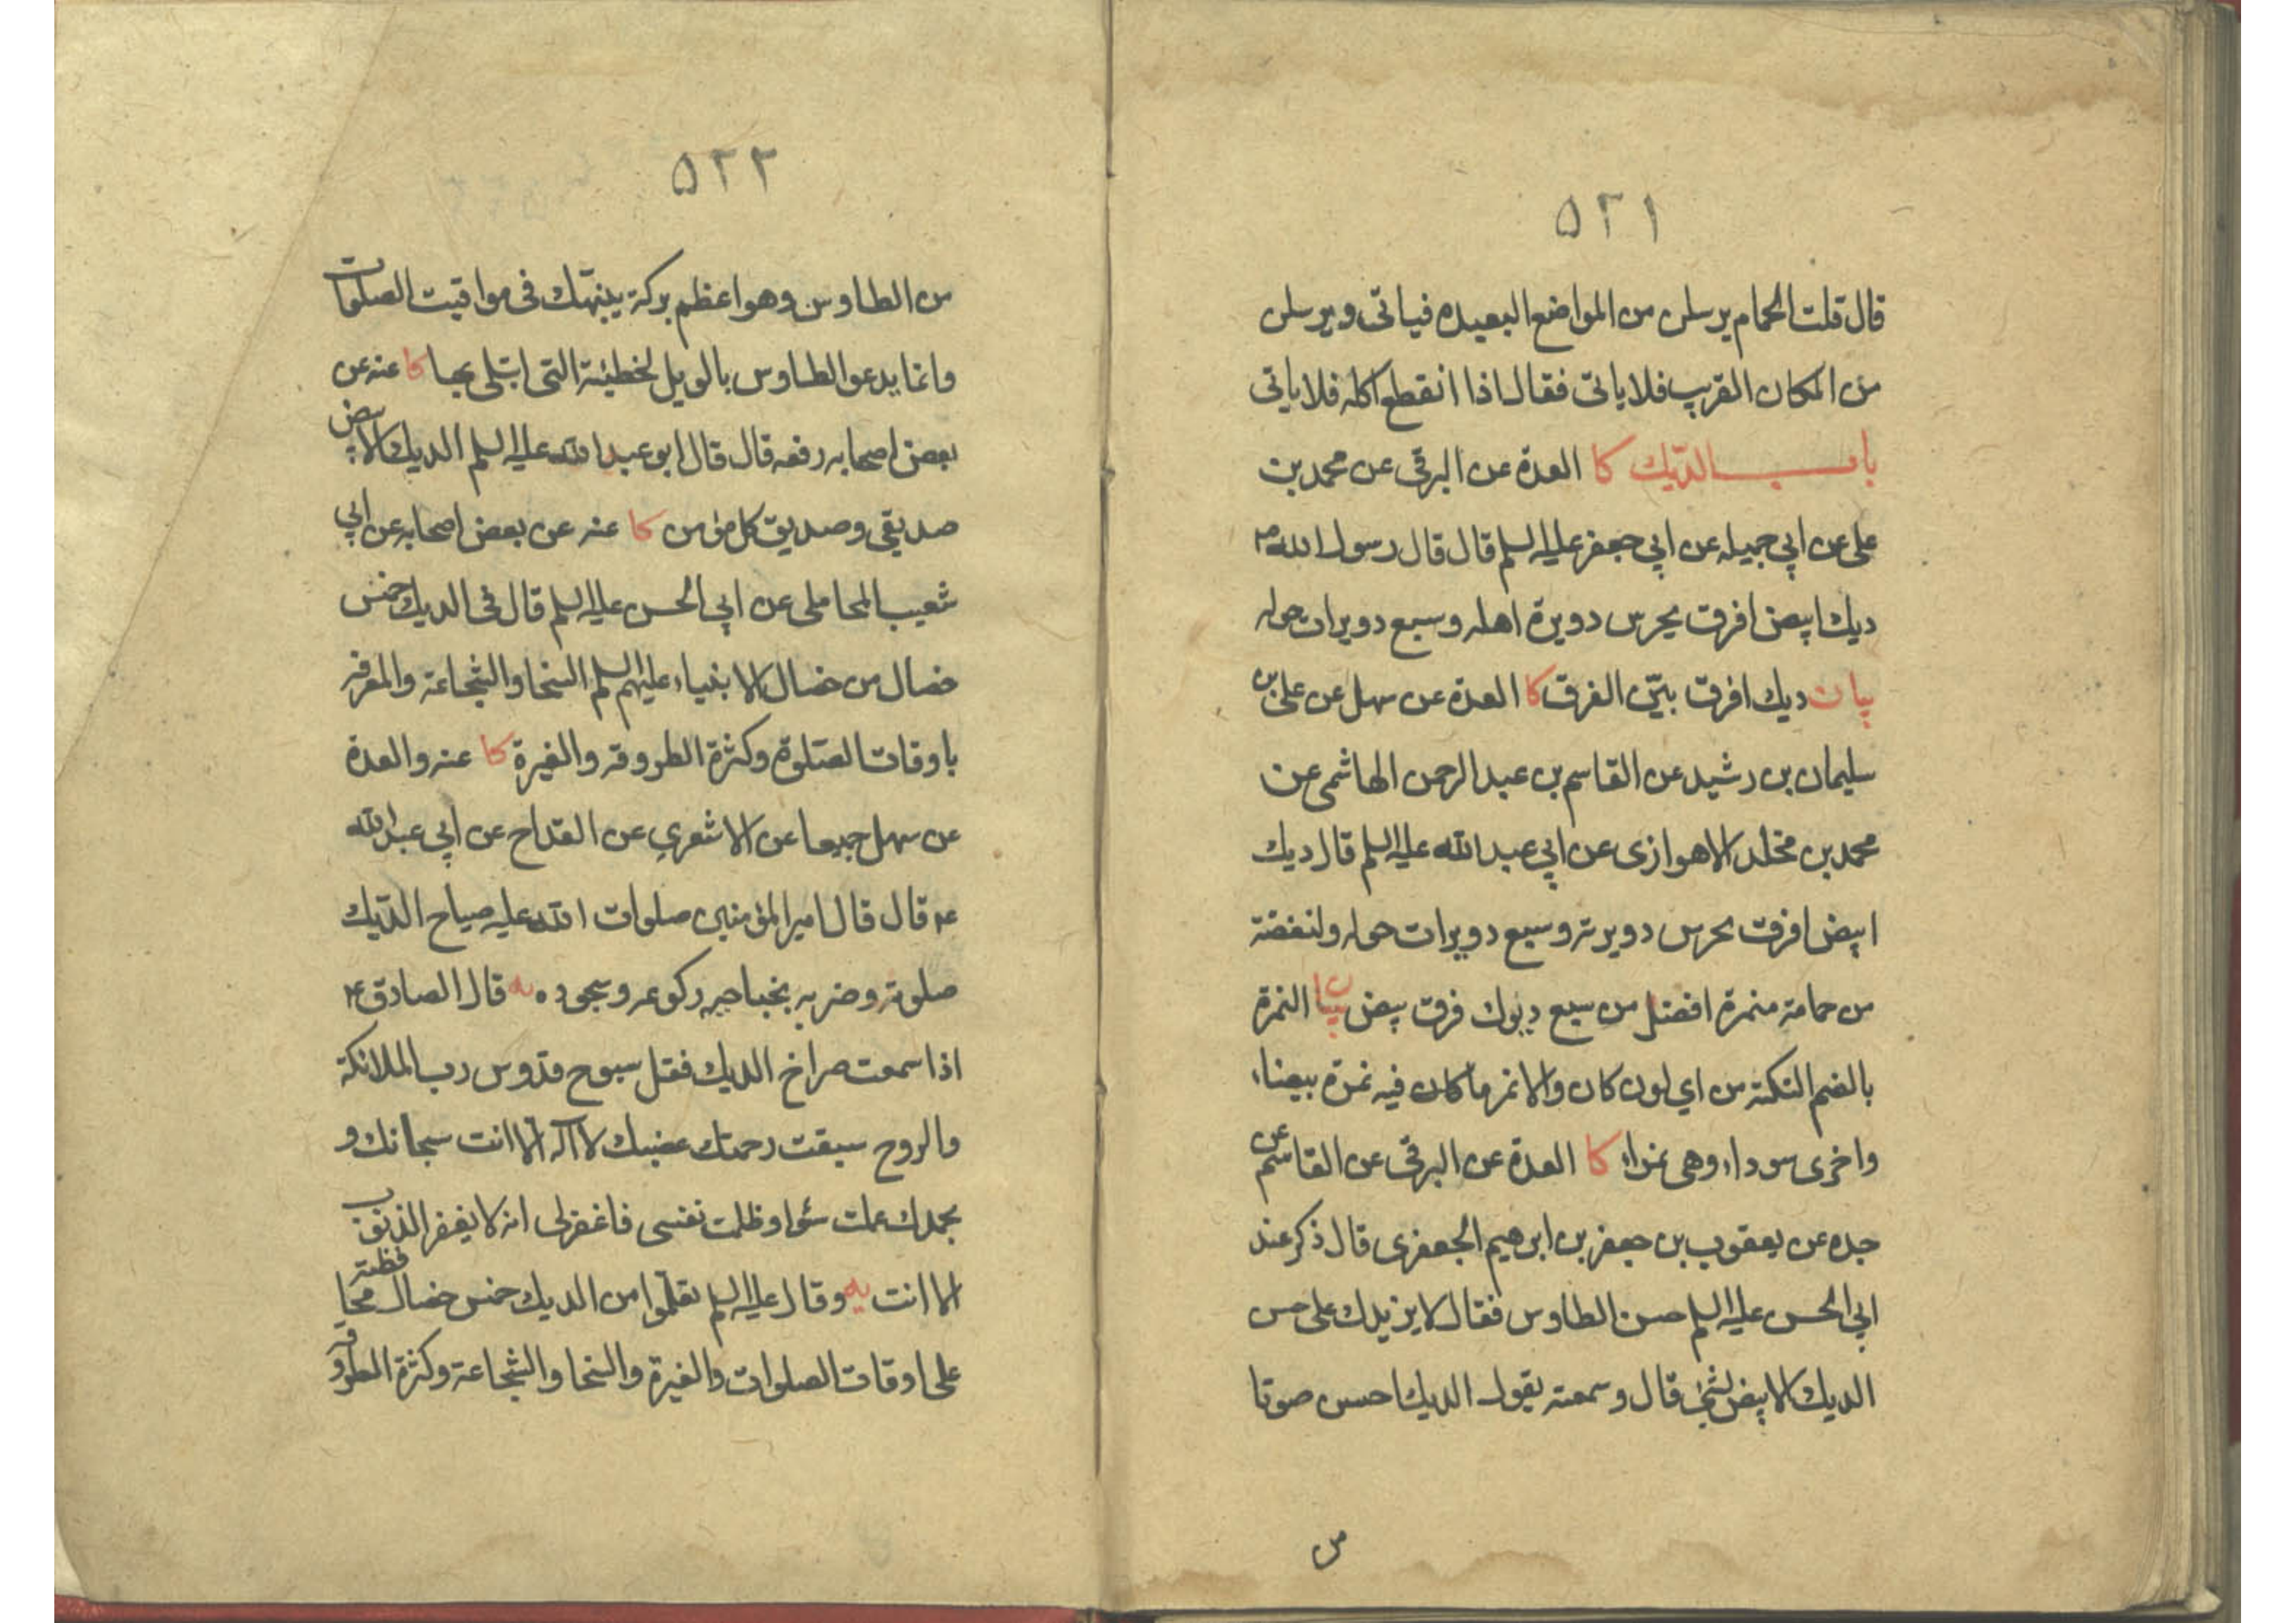 ٥٢١
قال قلت الحمام يرسلن من المواضع البعيده فياتى ويرسلن
من المكان القريب فلا ياتى فقال اذا انقطع اكله فلا ياتى
باب الدّيك كا العدة عن البرقى عن محمد بن
على عن ابي جميله عن ابي جعفر عليه السلم قال قال رسول الله ص
ديك ابيض افرق يحرس دويرة اهله وسبع دويرات حوله
بيان ديك افرق بيّن الفرق كا العدة عن سهل عن على بن
سليمان بن رشيد عن القاسم بن عبد الرحمن الهاشمى عن
محمد بن مخلد الاهوازى عن ابي عبد الله عليه السلم قال ديك
ابيض افرق يحرس دويرته وسبع دويرات حوله ولنفضة
من حمامة منمرة افضل من سبع ديوك فرق بيض بيان النمرة
بالضم النكتة من اي لون كان والانمر ما كان فيه نمرة بيضاء
واخرى سوداء وهى نمراء كا العدة عن البرقى عن القاسم عن
جده عن يعقوب بن جعفر بن ابرهيم الجعفرى قال ذكر عند
ابي الحسن عليه السلم حسن الطاوس فقال لا يزيدك على حسن
الديك الابيض بشئ قال وسمعته يقول الديك احسن صوتا
من
٥٢٢
من الطاوس وهو اعظم بركة ينبهك فى مواقيت الصلوات
وانما يدعو الطاوس بالويل لخطيئة التى ابتلى بها كا عنه عن
بعض اصحابه رفعه قال قال ابو عبد الله عليه السلم الديك الابيض
صديقى وصديق كل مؤمن كا عنه عن بعض اصحابه عن ابي
شعيب المحاملى عن ابي الحسن عليه السلم قال فى الديك خمس
خصال من خصال الانبياء عليهم السلم السخا والشجاعة والمعرفة
باوقات الصّلوة وكثرة الطروقة والغيرة كا عنه والعدة
عن سهل جميعا عن الاشعري عن القداح عن ابي عبد الله
ع قال قال امير المؤمنين صلوات الله عليه صياح الدّيك
صلوته وضربه بجناحيه ركوعه وسجوده يه قال الصادق ع
اذا سمعت صراخ الديك فقل سبوح قدّوس رب الملائكة
والروح سبقت رحمتك غضبك لا آله الا انت سبحانك و
بحمدك عملت سوءا وظلمت نفسى فاغفر لى انه لا يغفر الذنوب
الا انت يه وقال عليه السلم تعلّموا من الديك خمس خصال محافظته
على اوقات الصلوات والغيرة والسخا والشجاعة وكثرة الطروقة